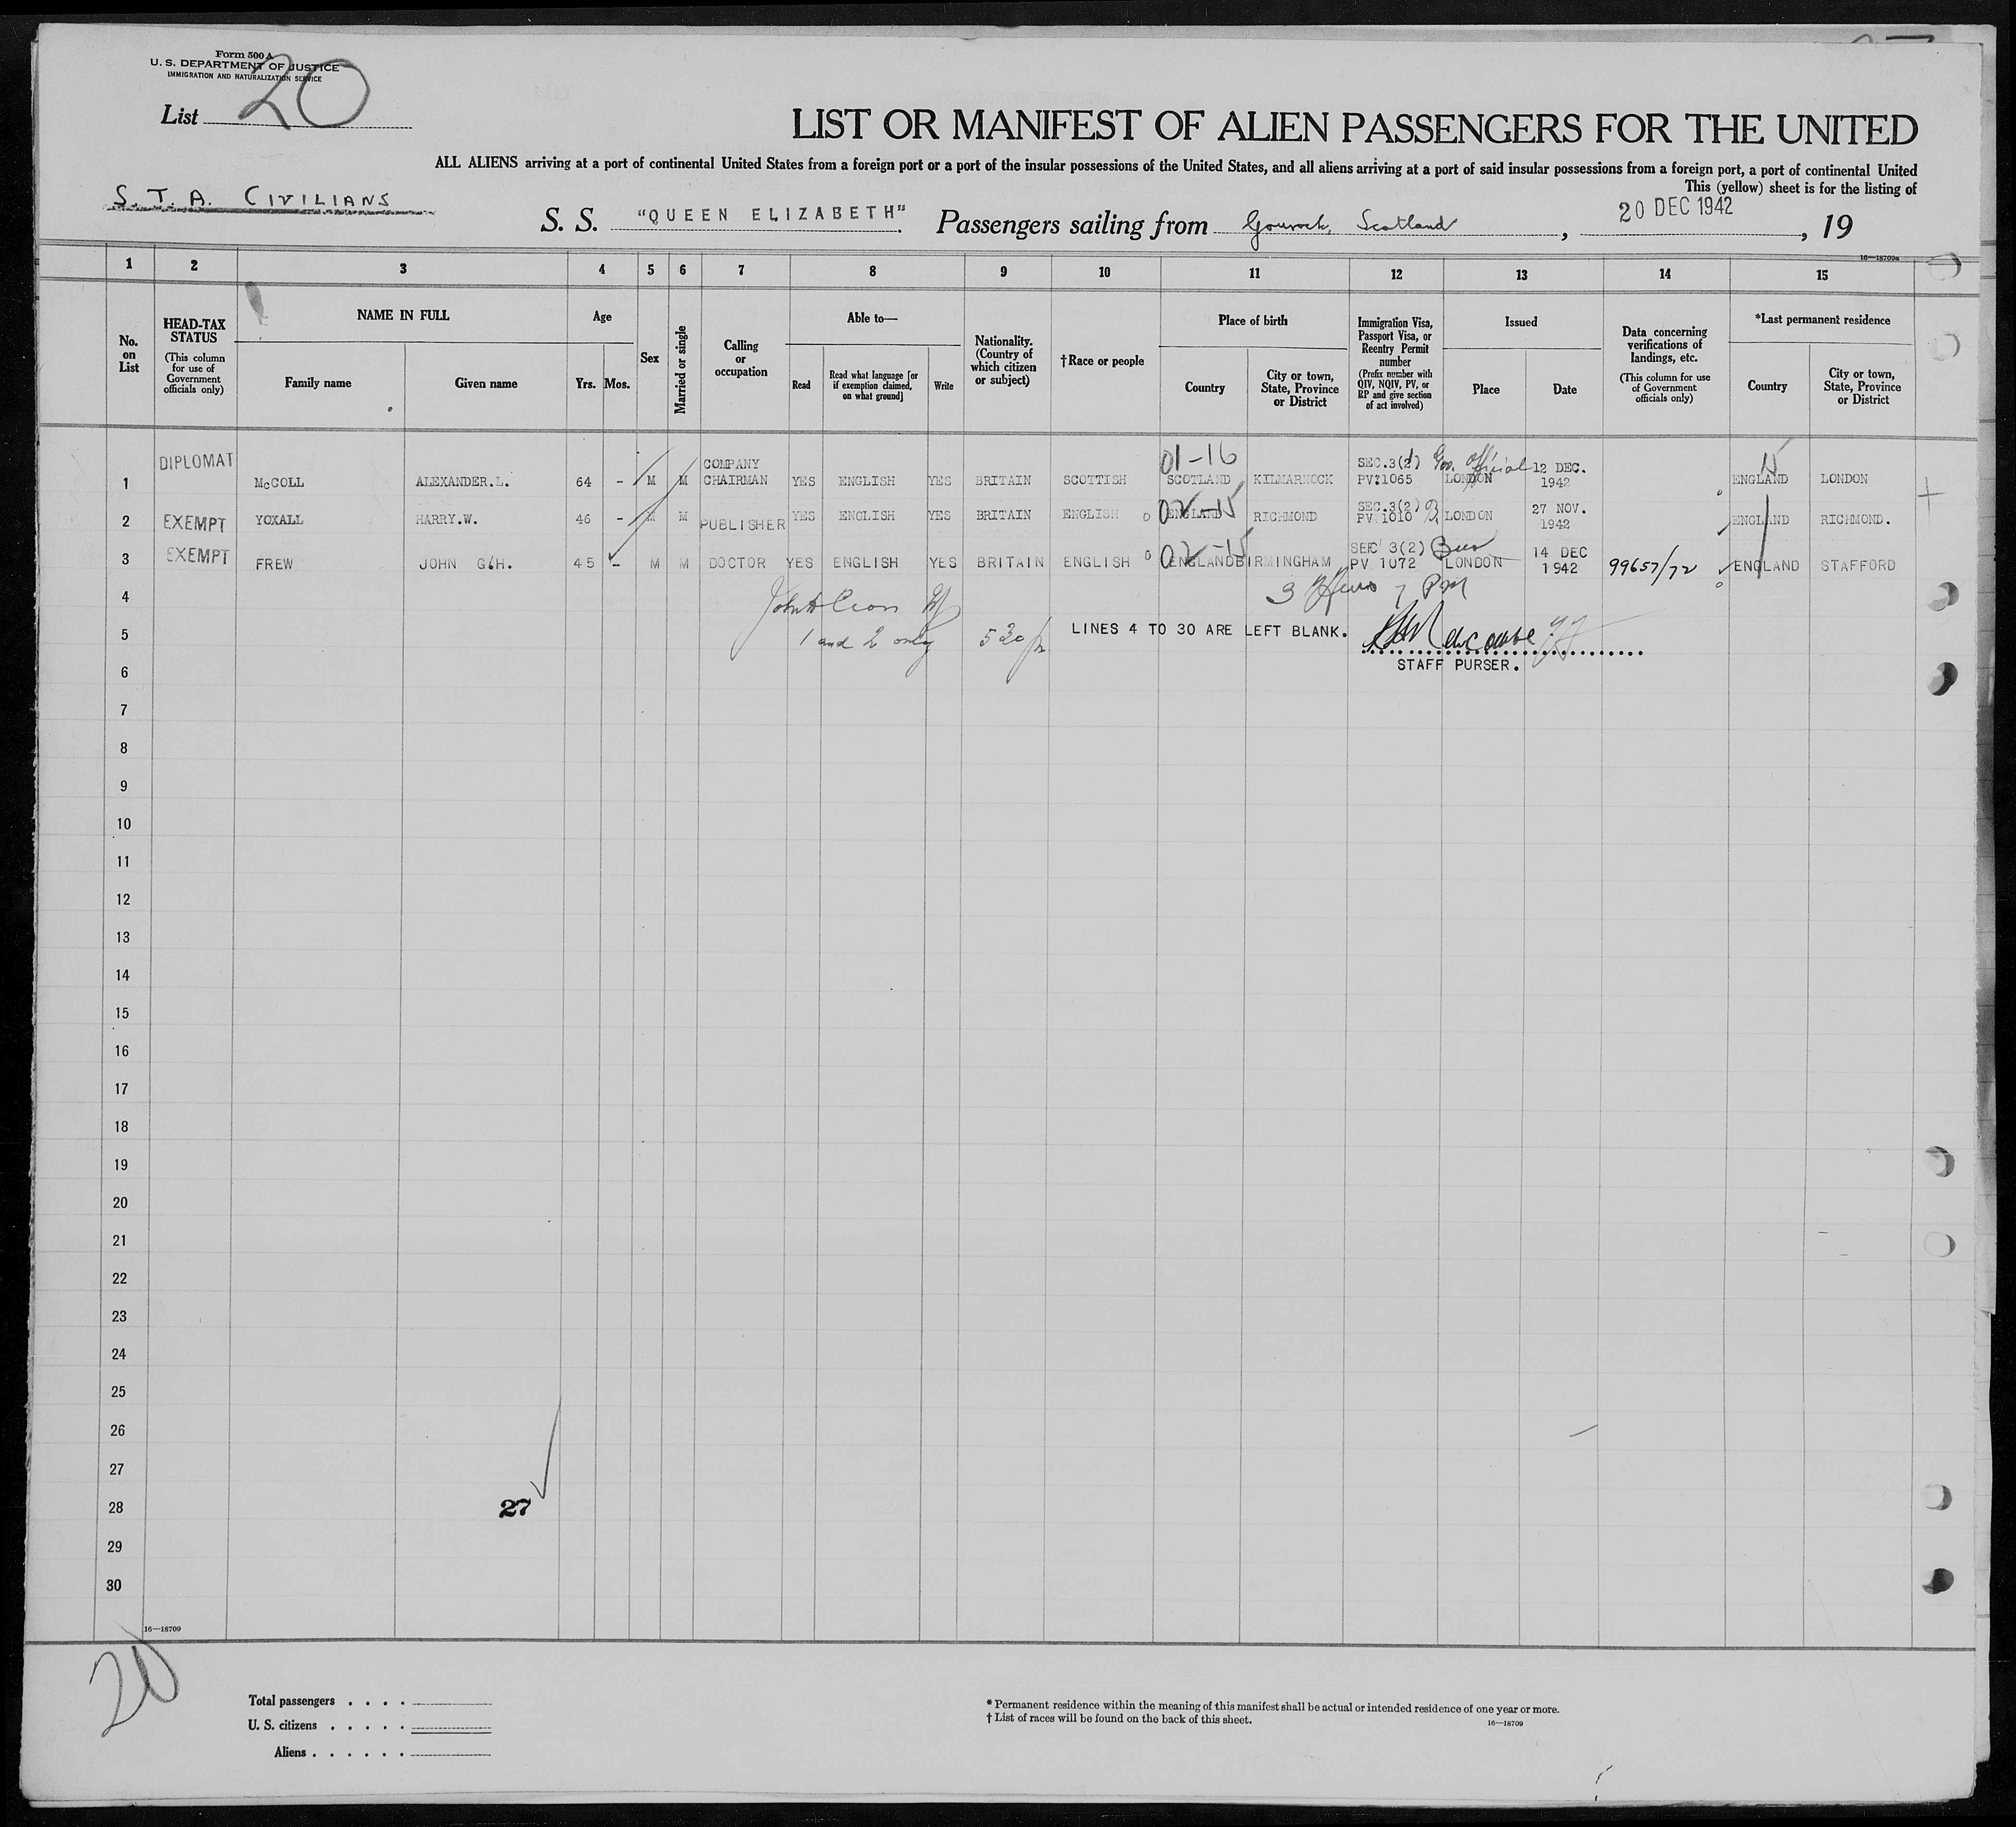 Form 500 A
U. S. DEPARTMENT OF JUSTICE
IMMIGRATION AND NATURALIZATION SERVICE
List 20
LIST OR MANIFEST OF ALIEN PASSENGERS FOR THE UNITED
ALL ALIENS arriving at a port of continental United States from a foreign port or a port of the insular possessions of the United States, and all aliens arriving at a port of said insular possessions from a foreign port, a port of continental United
This (yellow) sheet is for the listing of
S. T. A. CIVILIANS
S. S. "QUEEN ELIZABETH". Passengers sailing from Gourock, Scotland, 20 DEC 1942, 19
16—18709a
1 2 3 4 5 6 7 8 9 10 11 12 13 14 15
No. on List
HEAD-TAX STATUS (This column for use of Government officials only)
NAME IN FULL
Family name Given name
Age
Yrs. Mos.
Sex
Married or single
Calling or occupation
Able to—
Read
Read what language [or if exemption claimed, on what ground]
Write
Nationality. (Country of which citizen or subject)
†Race or people
Place of birth
Country
City or town, State, Province or District
Immigration Visa, Passport Visa, or Reentry Permit number (Prefix number with QIV, NQIV, PV, or RP and give section of act involved)
Issued
Place Date
Data concerning verifications of landings, etc. (This column for use of Government officials only)
*Last permanent residence
Country
City or town, State, Province or District
DIPLOMAT COMPANY 01-16 SEC.3(1) Gov. Official 12 DEC.
1 McCOLL ALEXANDER.L. 64 - M M CHAIRMAN YES ENGLISH YES BRITAIN SCOTTISH SCOTLAND KILMARNOCK PV21065 LONDON 1942 ENGLAND LONDON
02-15 SEC.3(2) 27 NOV.
2 EXEMPT YOXALL HARRY.W. 46 - M M PUBLISHER YES ENGLISH YES BRITAIN ENGLISH ENGLAND RICHMOND PV 1010 LONDON 1942 ENGLAND RICHMOND.
02-15 SEC 3(2) Bus 14 DEC
3 EXEMPT FREW JOHN G.H. 45 - M M DOCTOR YES ENGLISH YES BRITAIN ENGLISH ENGLAND BIRMINGHAM PV 1072 LONDON 1942 99657/72 ENGLAND STAFFORD
4
1 and 2 only
5 LINES 4 TO 30 ARE LEFT BLANK.
STAFF PURSER.
6
7
8
9
10
11
12
13
14
15
16
17
18
19
20
21
22
23
24
25
26
27
28 27
29
30
16—18709
20
Total passengers . . . .
U. S. citizens . . . . .
Aliens . . . . . .
* Permanent residence within the meaning of this manifest shall be actual or intended residence of one year or more.
† List of races will be found on the back of this sheet.
16—18709